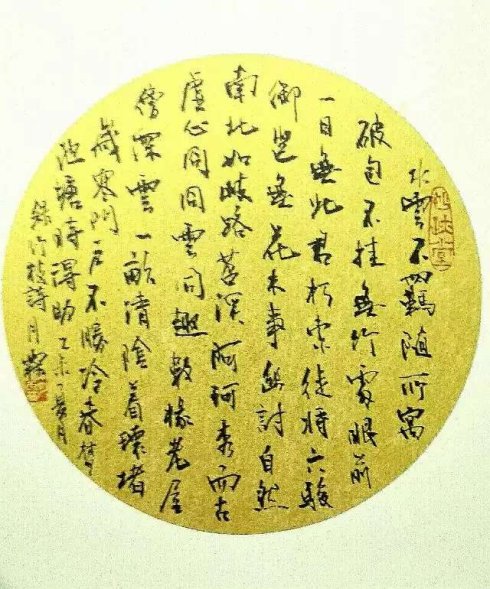 水雲不羈隨所寓
破包不挂無竹處眼前
一日無此君朽索徒將六駿
御豈無花木事幽討自然
南北如歧路蒼溟阿珂秀而古
虛心同雲同趣數椽老屋
傍深雲一畝清陰着環堵
歲寒門戶不勝冷春夢
池塘時得助乙未夏月
錄竹枝詩月